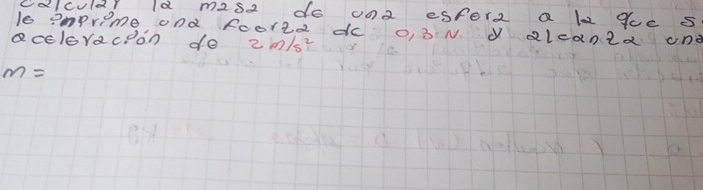 calcular la masa de una esfera a la que s
le imprime una fuerza de 0,3 N. y alcanza una
aceleración de 2 m/s²
m =